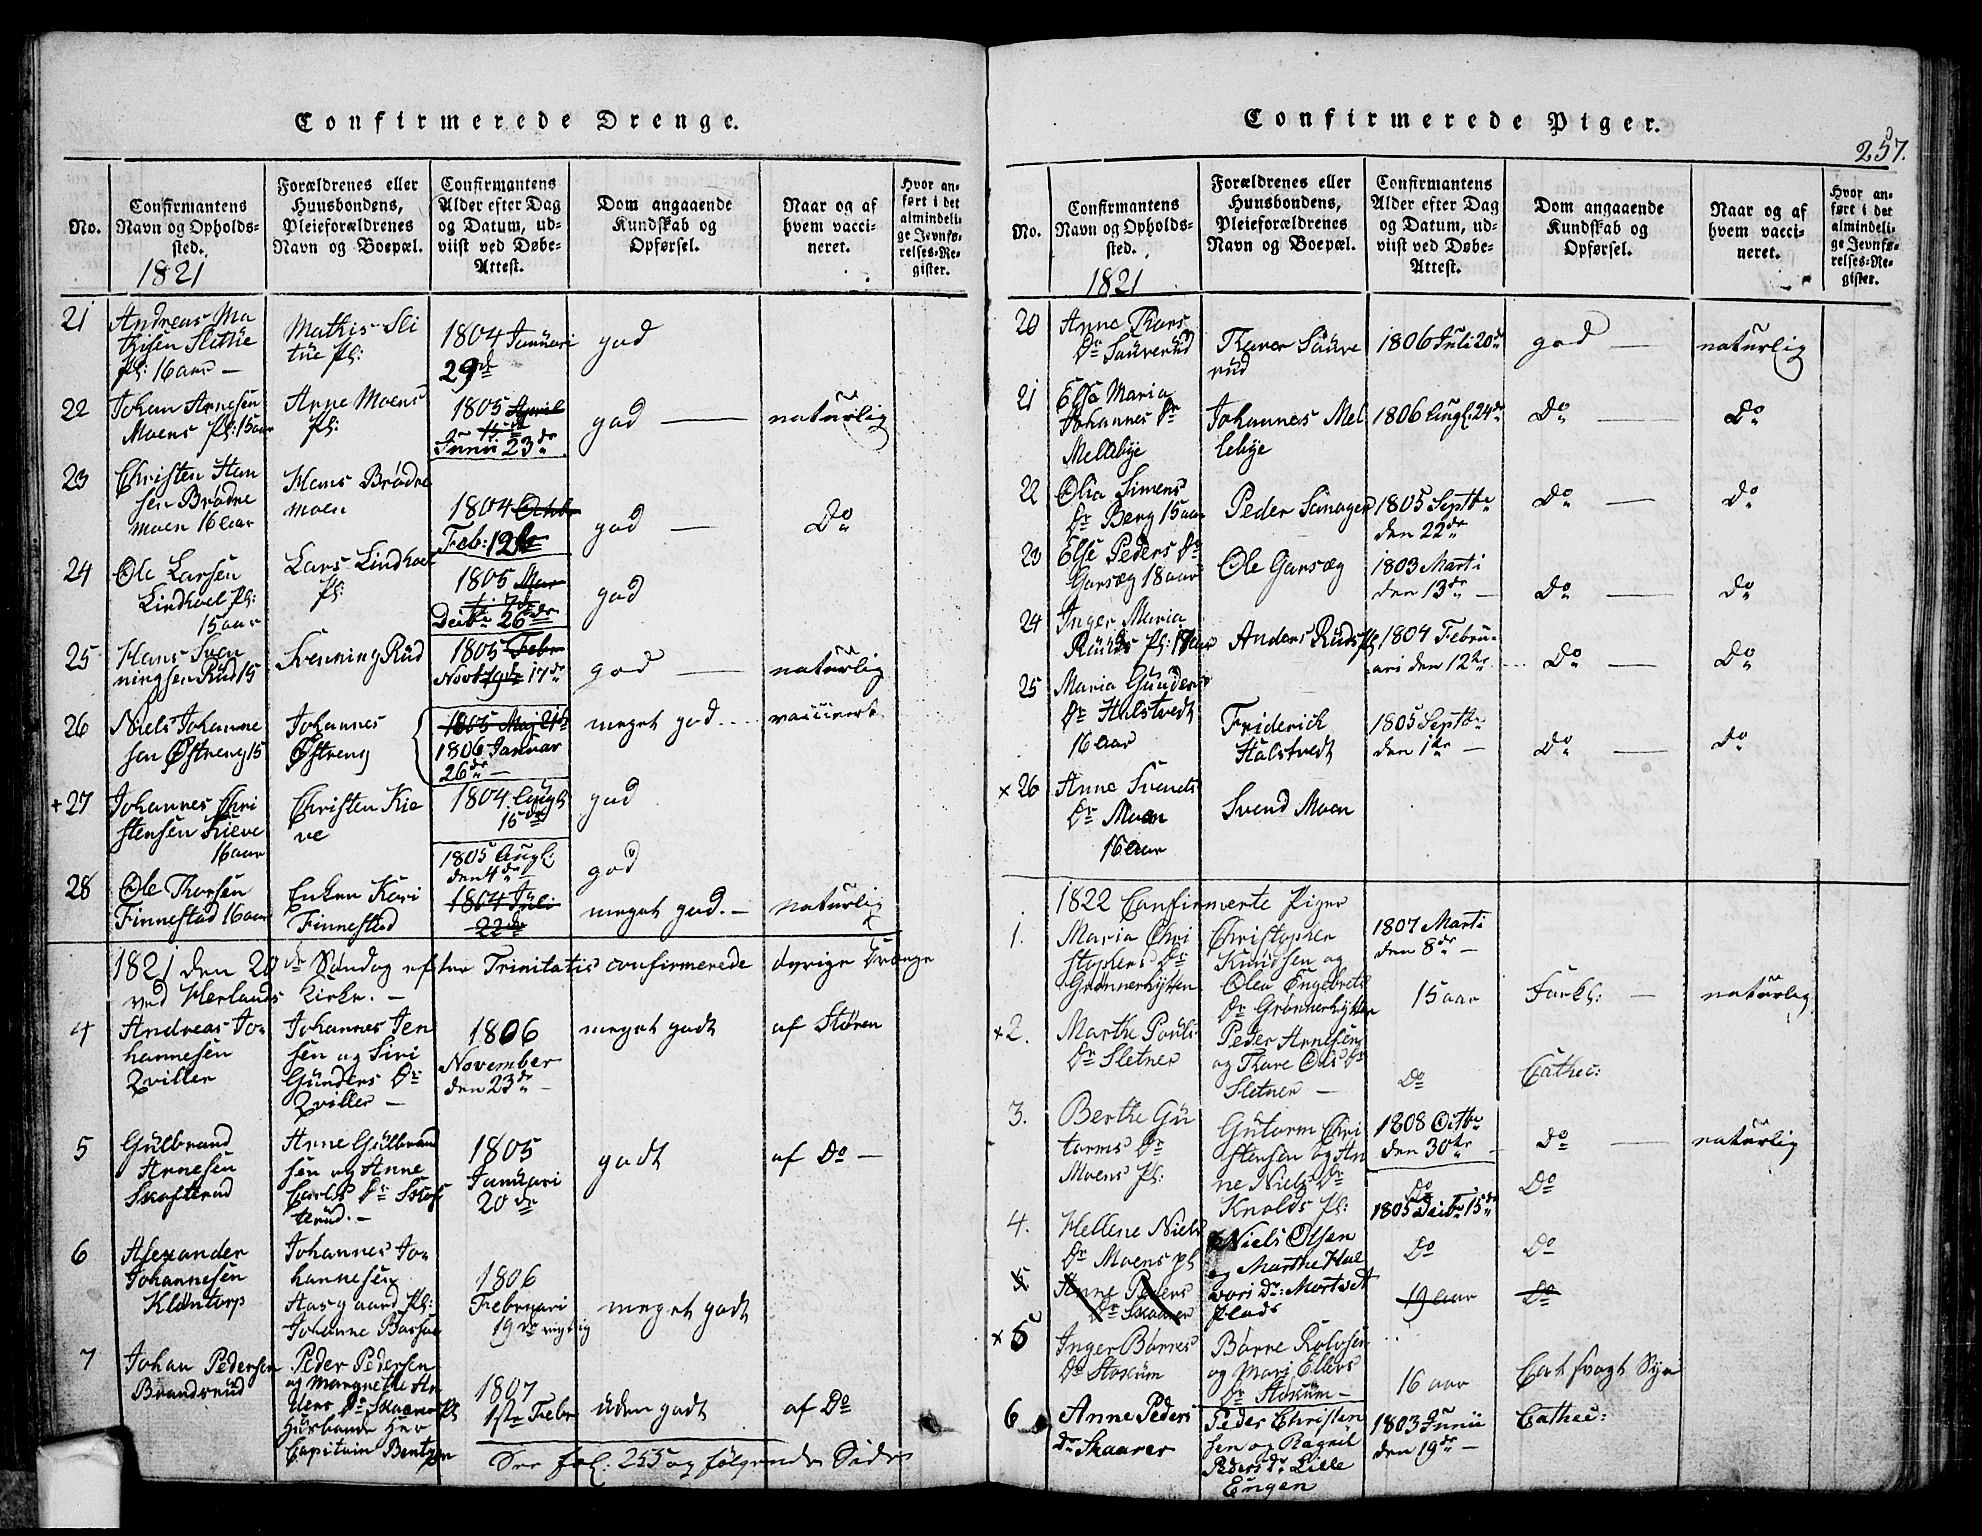 Confirmerede Drenge.
No.
Confirmantens
Navn og Opholds-
sted.
1821
Forældrenes eller
Huusbondens,
Pleieforældrenes
Navn og Boepæl.
Confirmantens
Alder efter Dag
og Datum, ud-
viist ved Døbe-
Attest.
Dom angaaende
Kundskab og
Opførsel.
Naar og af
hvem vacci-
neret.
Hvor an-
ført i det
almindeli-
ge Jevnfø-
relses-Re-
gister.
21
Andreas Ma
thisen Slittüe
Pl: 16 aar —
Mathis Sli
tüe Pl:
1804 Januari
29de
god
22
Johan Arnesen
Moens Pl: 15 aar
Arne Moens
Pl:
1805 April
15de
Junii 23de
god —
naturlig
23
Christen Han
sen Brødre
moen 16 aar
Hans Brødre
moen
1804 Octbr
Feb: 12te
god —
Do
24
Ole Larsen
Lindhoel Pl:
15 aar
Lars Lindhoel
Pl:
1805 Mar
ti 7de
Decbr 26de
god
25
Hans Sven
ningsen Rüd 15
Svenning Rüd
1805 Febr
Novbr 19de 17de
god —
naturlig
26
Niels Johanne
sen Østreng 15
Johannes
Østreng
1805 Maj 21de
1806 Januar
26de —
meget god
vaccinert
+ 27
Johannes Chri
stensen Kieve
16 aar
Christen Kie
ve
1804 Augl
15de
god
28
Ole Thorsen
Finnestad 16 aar
Enken Kari
Finnestad
1805 Augl:
den 4de
1804 Juli
22de
god
meget god. —
naturlig
1821 den 20de Søndag efter Trinitatis confirmerede øvrige Drenge
ved Herlands Kirke. —
4
Andreas Jo-
hannesen
Qviller
Johannes Jen
sen og Siri
Günders Dr
Qviller —
1806
November
den 23de —
meget godt
af Støren
5
Gülbrand
Arnesen
Skofterud
Arne Gülbrand
sen og Anne
Carls Dr Skof
terud. —
1805
Januari
20de
godt
af Do —
6
Alexander
Johannesen
Kløntorp
Johannes Jo-
hannesen
Aasgaard Pl:
Johanne
1806
Februari
19de rigtig
meget godt
7
Johan Pedersen
Brandsrud
Peder Pedersen
og Margrethe An
ders Dr Skaarer Pl
Husbonde Her
Capitain Bentzen
1807
1ste Febr
üden godt
af Do
See fol. 255 og følgende Sider
Confirmerede Piger.
257.
No.
Confirmantens
Navn og Opholds-
sted.
1821
Forældrenes eller
Huusbondens,
Pleieforældrenes
Navn og Boepæl.
Confirmantens
Alder efter Dag
og Datum, ud-
viist ved Døbe-
Attest.
Dom angaaende
Kundskab og
Opførsel.
Naar og af
hvem vacci-
neret.
Hvor an-
ført i det
almindeli-
ge Jevnfø-
relses-Re-
gister.
20
Anne Thors
Dr Saüverüd
Thorer Saüve
rüd
1806 Juli 20de
god —
naturlig
21
Else Maria
Johannes Dr
Mellebye
Johannes Mel
lebye
1806 Augl: 24de
Do —
Do
22
Olia Simens
Dr Berg 15 aar
Peder Sanager
1805 Septbr
den 22de
Do —
Do
23
Else Peders Dr
Garsæg 18 aar
Ole Garsæg
1803 Marti
den 13de —
Do —
Do
24
Inger Maria
Rüds Pl: 17 aar
Anders Rüds Pl
1804 Febru-
ari den 12te
Do —
Do
25
Maria Gunders
Dr Halstvedt
16 aar
Friderich
Halstvedt
1805 Septbr
den 1te —
Do —
Do
x 26
Anne Svends
Dr Moen
16 aar
Svend Moen
1822 Confirmerte Piger
1.
Maria Chri
stophers Dr
Grønnerhytten
Christopher
Knudsen og
Olea Engebrets
Dr Grønnerhytten
1807 Marti
den 8de —
15 aar
Forkl: —
naturlig
x 2.
Marthe Pouls
Dr Sletner
Peder Arnesen
og Thore Ols Dr
Sletner —
Do
Cathec:
3.
Berthe Gü
torms Dr
Moens Pl:
Gütorm Chri
stensen og An
ne Niels Dr
Knolds Pl:
1808 Octbr
den 30te —
Do
Do —
Do
naturlig
4.
Hellene Niels
Dr Moens pl
Niels Olsen
og Marthe Hal
vors Dr: Mortvedt
plads
1805 Decbr 15de
Do
Do
5
Anne Peders
Dr Skaarer
19 aar
Do
x 5
Inger Børres
Dr Stoküm
Børre Rolvsen
og Mari Ellevs
Dr Stoküm —
16 aar
Cat svagt Syn
6
Anne Peders
Dr Skaarer
Peder Christen
sen og Ragnil
Peders Dr Lille
Engen
1803 Junii
den 19de —
Cathec: